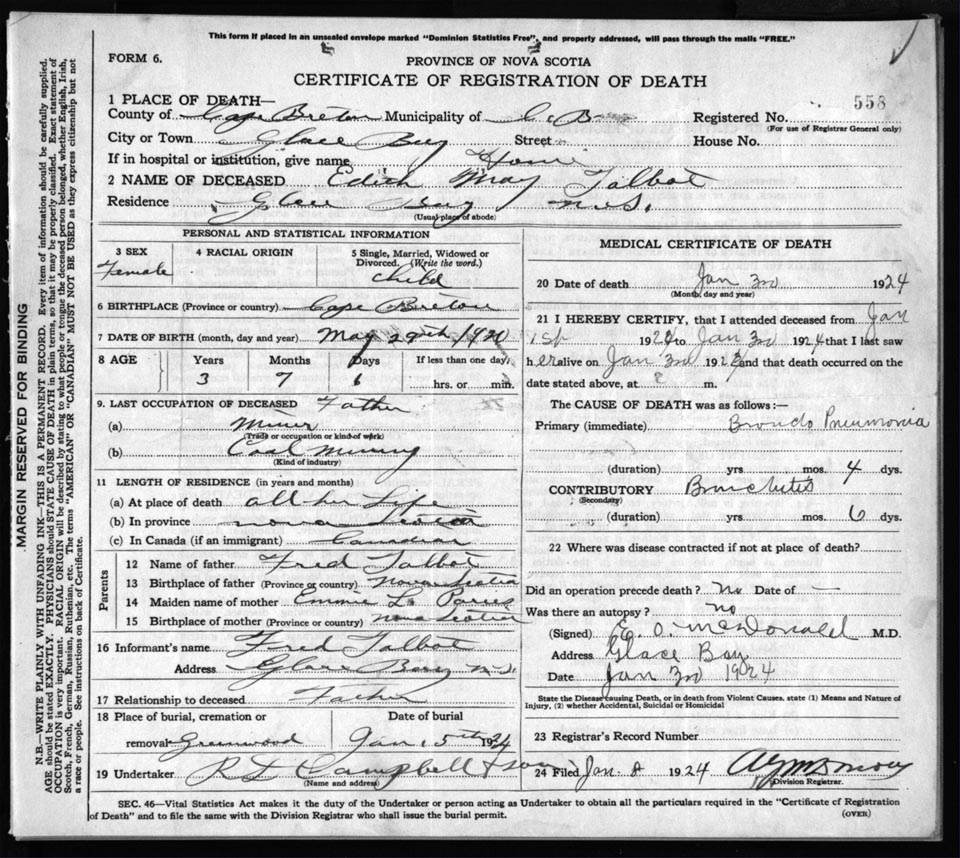 This form if placed in an unsealed envelope marked "Dominion Statistics Free", and properly addressed, will pass through the mails "FREE."
FORM 6.
PROVINCE OF NOVA SCOTIA
CERTIFICATE OF REGISTRATION OF DEATH
1 PLACE OF DEATH—
558
County of Cape Breton Municipality of C. B. Registered No.
(For use of Registrar General only)
City or Town Glace Bay Street House No.
If in hospital or institution, give name Home
2 NAME OF DECEASED Edith May Talbot
Residence Glace Bay N.S.
(Usual place of abode)
PERSONAL AND STATISTICAL INFORMATION
3 SEX 4 RACIAL ORIGIN 5 Single, Married, Widowed or Divorced. (Write the word.)
Female child
6 BIRTHPLACE (Province or country) Cape Breton
7 DATE OF BIRTH (month, day and year) May 29th 1920
8 AGE Years Months Days If less than one day,
3 7 hrs. or min.
9. LAST OCCUPATION OF DECEASED Father
(a) Miner
(Trade or occupation or kind of work)
(b) Coal Mining
(Kind of industry)
11 LENGTH OF RESIDENCE (in years and months)
(a) At place of death all her Life
(b) In province Nova Scotia
(c) In Canada (if an immigrant) Canadian
Parents
12 Name of father Fred Talbot
13 Birthplace of father (Province or country) Nova Scotia
14 Maiden name of mother Emmie L.
15 Birthplace of mother (Province or country) Nova Scotia
16 Informant's name Fred Talbot
Address Glace Bay N.S.
17 Relationship to deceased Father
18 Place of burial, cremation or removal Greenwood
Date of burial Jan. 5th 1924
19 Undertaker R I Campbell & son
(Name and address)
MEDICAL CERTIFICATE OF DEATH
20 Date of death Jan 3rd 1924
(Month, day and year)
21 I HEREBY CERTIFY, that I attended deceased from Jan
1st 1924 to Jan 3rd 1924 that I last saw
her alive on Jan 3rd 1924 and that death occurred on
date stated above, at m.
The CAUSE OF DEATH was as follows:—
Primary (immediate) Broncho Pneumonia
(duration) yrs. mos. 4 dys.
CONTRIBUTORY Bronchitis
(Secondary)
(duration) yrs. mos. 6 dys.
22 Where was disease contracted if not at place of death?
Did an operation precede death? No Date of —
Was there an autopsy? no
(Signed) E. O. McDonald M.D.
Address Glace Bay
Date Jan 3rd 1924
State the Disease causing Death, or in death from Violent Causes, state (1) Means and Nature of
Injury, (2) whether Accidental, Suicidal or Homicidal
23 Registrar's Record Number
24 Filed Jan. 8 1924
Division Registrar.
SEC. 46—Vital Statistics Act makes it the duty of the Undertaker or person acting as Undertaker to obtain all the particulars required in the "Certificate of Registration
of Death" and to file the same with the Division Registrar who shall issue the burial permit.
(OVER)
MARGIN RESERVED FOR BINDING
N.B.—WRITE PLAINLY WITH UNFADING INK—THIS IS A PERMANENT RECORD. Every item of information should be carefully supplied.
AGE should be stated EXACTLY. PHYSICIANS should STATE CAUSE OF DEATH in plain terms, so that it may be properly classified. Exact statement of
OCCUPATION is very important. RACIAL ORIGIN will be described by stating to what people or tongue the deceased person belonged, whether English, Irish,
Scotch, French, German, Russian, Ruthenian, etc. The terms "AMERICAN" or "CANADIAN" MUST NOT BE USED as they express citizenship but not
a race or people. See instructions on back of Certificate.